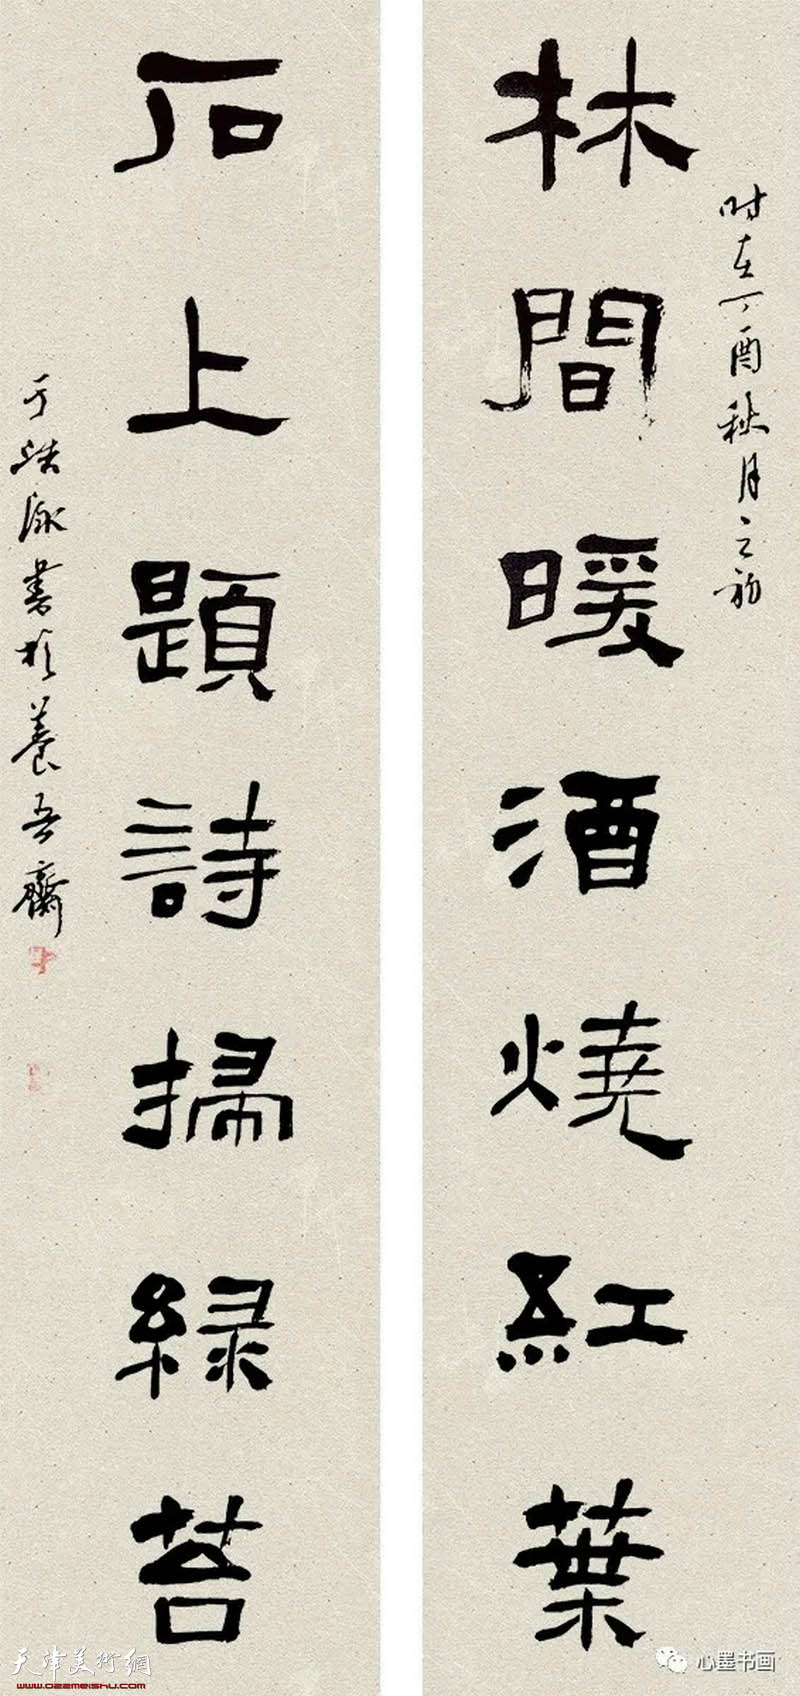 林間暖酒燒紅葉
时在丁酉秋月之初
石上題詩掃綠苔
于浩泳書於養吾齋
天津美術網
www.022meishu.com
心墨书画